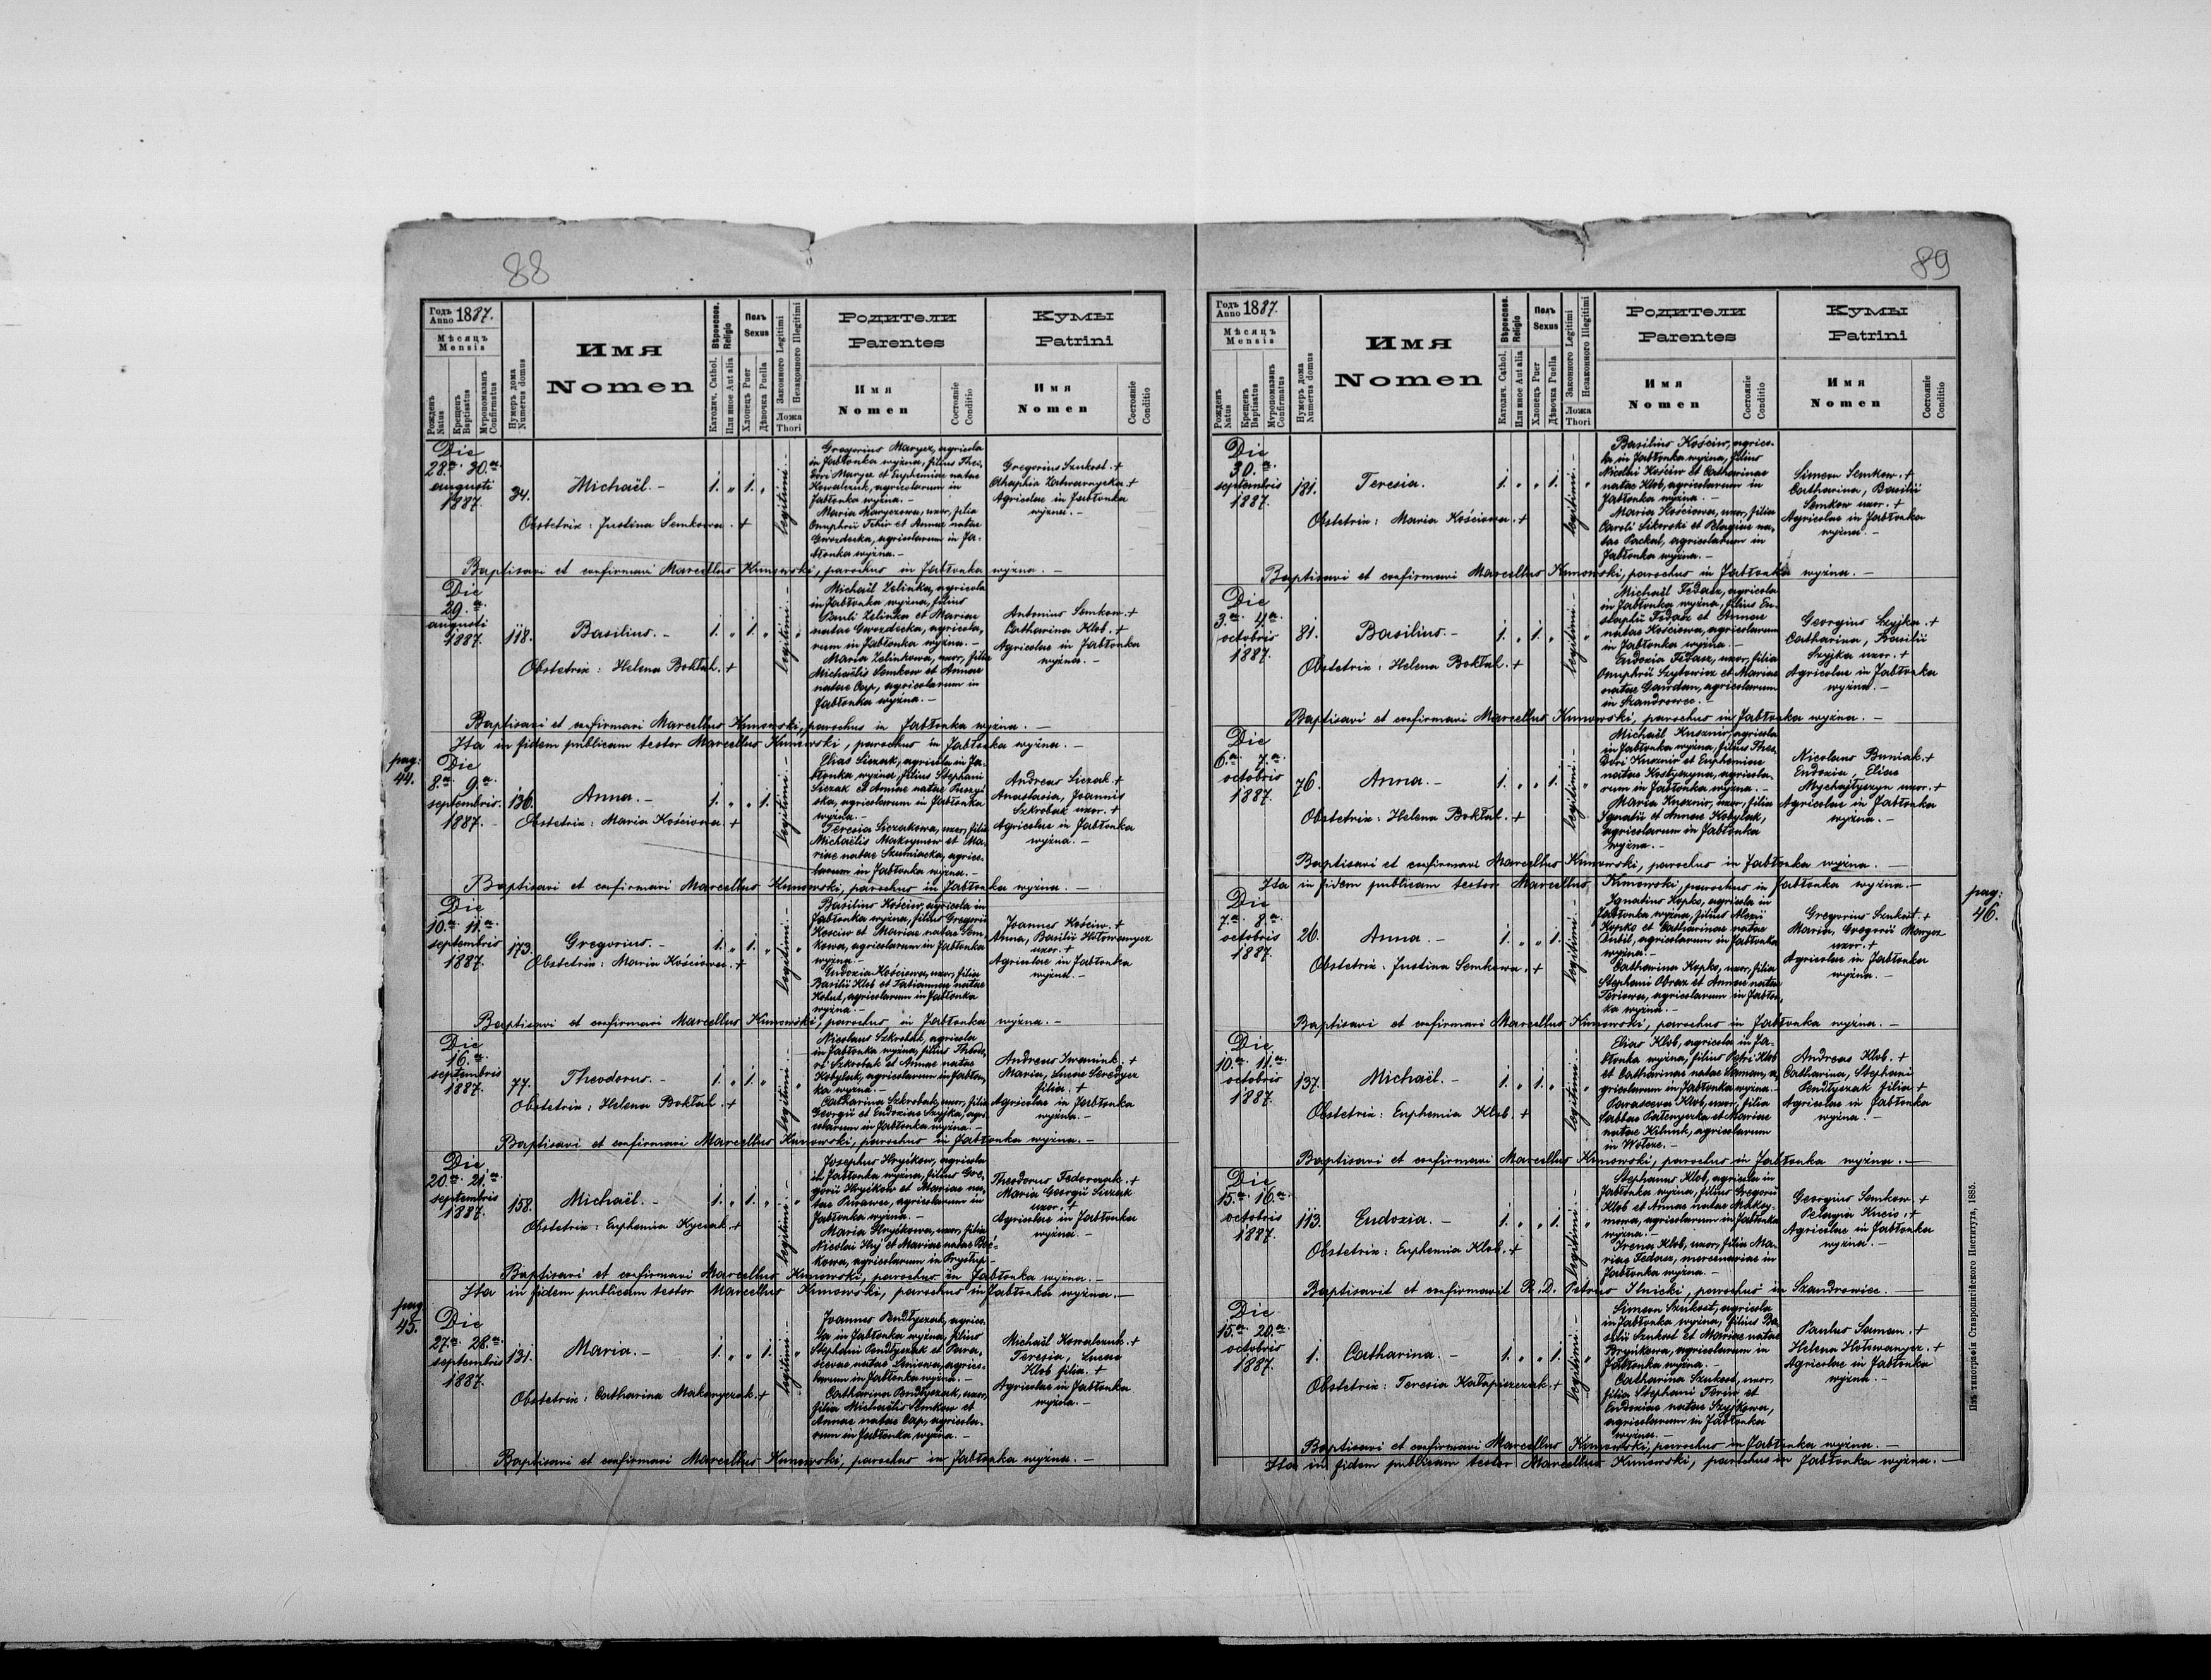 88
Годъ Anno 1887.
Мѣсяцъ Mensis
Рожденъ Natus
Крещенъ Baptisatus
Мѵропомазанъ Confirmatus
Нумеръ дома Numerus domus
Имя Nomen
Вѣроиспов. Religio
Католич. Cathol.
Или иное Aut alia
Полъ Sexus
Хлопецъ Puer
Дѣвочка Puella
Законного Legitimi
Незаконного Illegitimi
Ложа Thori
Родители Parentes
Имя Nomen
Состояніе Conditio
Кумы Patrini
Имя Nomen
Состояніе Conditio
Die
28.a 30.a
augusti
1887.
34.
Michaël. -
1. „ 1. „
legitimi -
Gregorius Marycz, agricola
in Jabłonka wyżna, filius Theo-
dori Marycz et Euphemiae natae
Kowalczuk, agricolarum in
Jabłonka wyżna. -
Maria Maryczowa, uxor, filia
Onuphrii et Annae natae
Gwozdecka, agricolarum in Ja-
błonka wyżna. -
Gregorius Szukost. +
Agricolae in Jabłonka
wyżna. -
Obstetrix: Justina Semkowa. +
Baptisavi et confirmavi Marcellus Kunowski, parochus in Jabłonka wyżna. -
Die
29.a
augusti
1887.
118.
Basilius. -
1. „ 1. „
legitimi -
Michaël Zelinka, agricola
in Jabłonka wyżna, filius
Pauli Zelinka et Mariae
natae Gwozdecka, agricola-
rum in Jabłonka wyżna. -
Maria Zelinkowa, uxor, filia
Michaëlis Semkow et Annae
natae Cap, agricolarum in
Jabłonka wyżna. -
Antonius Semkow. +
Catharina Klob. +
Agricolae in Jabłonka
wyżna. -
Obstetrix: Helena Boktal. +
Baptisavi et confirmavi Marcellus Kunowski, parochus in Jabłonka wyżna. -
Ita in fidem publicam testor Marcellus Kunowski, parochus in Jabłonka wyżna. -
pag:
44.
Die
8.a 9.a
septembris.
1887. -
136.
Anna. -
1. „ „ 1.
legitimi -
Elias Siczak, agricola in Ja-
błonka wyżna, filius Stephani
Siczak et Annae natae
agricolarum in Jabłonka
wyżna. -
Teresia Siczakowa, uxor, filia
Michaëlis Maksymow et Ma-
riae natae agrico-
larum in Jabłonka wyżna. -
Andreas Siczak. +
Anastasia, Joannis
Szkrobak uxor. +
Agricolae in Jabłonka
wyżna. -
Obstetrix: Maria Kościowa. +
Baptisavi et confirmavi Marcellus Kunowski, parochus in Jabłonka wyżna. -
Die
10.a 11.a
septembris
1887.
173.
Gregorius. -
1. „ 1. „
legitimi -
Basilius Kościw, agricola in
Jabłonka wyżna, filius Gregorii
Kościw et Mariae natae Sem-
kowa, agricolarum in Jabłonka
wyżna -
Eudoxia Kościowa, uxor, filia
Basilii Klob et Tatiannae natae
Kohut, agricolarum in Jabłonka
wyżna. -
Joannes Kościw. +
Anna, Basilii Hołowanycz
uxor. +
Agricolae in Jabłonka
wyżna. -
Obstetrix: Maria Kościowa. +
Baptisavi et confirmavi Marcellus Kunowski, parochus in Jabłonka wyżna. -
Die
16.a
septembris
1887.
77.
Theodorus. -
1. „ 1. „
legitimi -
Nicolaus Szkrobak, agricola
in Jabłonka wyżna, filius Theodo-
ri Szkrobak et Annae natae
Kobylak, agricolarum in Jabłon-
ka wyżna. -
Catharina Szkrobak, uxor, filia
Georgii et Eudoxiae Szyjka, agri-
colarum in Jabłonka wyżna. -
Andreas Iwaniuk. +
Maria, Lucae Seredycz
filia. +
Agricolae in Jabłonka
wyżna. -
Obstetrix: Helena Boktal. +
Baptisavi et confirmavi Marcellus Kunowski, parochus in Jabłonka wyżna. -
Die
20.a 21.a
septembris
1887.
158.
Michaël. -
1. „ 1. „
legitimi -
Josephus Hryćkow, agricola
in Jabłonka wyżna, filius Gre-
gorii Hryćkow et Mariae na-
tae agricolarum in
Jabłonka wyżna. -
Maria Hryćkowa, uxor, filia
Nicolai Hrij et Mariae natae
agricolarum in Prystup. -
Theodorus Fedorczak. +
Maria Georgii Siczak
uxor. +
Agricolae in Jabłonka
wyżna. -
Obstetrix: Euphemia Kyczak. +
Baptisavi et confirmavi Marcellus Kunowski, parochus in Jabłonka wyżna. -
Ita in fidem publicam testor Marcellus Kunowski, parochus in Jabłonka wyżna. -
pag
45.
Die
27.a 28.a
septembris
1887.
131.
Maria. -
1. „ „ 1.
legitimi -
Joannes Pendłyszak, agrico-
la in Jabłonka wyżna, filius
Stephani Pendłyszak et Para-
scevae natae agrico-
larum in Jabłonka wyżna. -
Catharina Pendłyszak, uxor,
filia Michaëlis Semkow et
Annae natae Cap, agricola-
rum in Jabłonka wyżna. -
Michaël Kowalczuk. +
Teresia, Lucae
Klob filia. +
Agricolae in Jabłonka
wyżna. -
Obstetrix: Catharina Makaryczak. +
Baptisavi et confirmavi Marcellus Kunowski, parochus in Jabłonka wyżna. -
89
Годъ Anno 1887.
Мѣсяцъ Mensis
Рожденъ Natus
Крещенъ Baptisatus
Мѵропомазанъ Confirmatus
Нумеръ дома Numerus domus
Имя Nomen
Вѣроиспов. Religio
Католич. Cathol.
Или иное Aut alia
Полъ Sexus
Хлопецъ Puer
Дѣвочка Puella
Законного Legitimi
Незаконного Illegitimi
Ложа Thori
Родители Parentes
Имя Nomen
Состояніе Conditio
Кумы Patrini
Имя Nomen
Состояніе Conditio
Die
30.a
septembris
1887.
181.
Teresia.
1. „ „ 1.
legitimi -
Basilius Kościw, agrico-
la in Jabłonka wyżna, filius
Nicolai Kościw et Catharinae
natae Klob, agricolarum in
Jabłonka wyżna. -
Maria Kościowa, uxor, filia
Caroli Sikorski et Pelagiae na-
tae Packal, agricolarum in
Jabłonka wyżna. -
Simeon Semkow. +
Catharina, Basilii
Semkow uxor. +
Agricolae in Jabłonka
wyżna. -
Obstetrix: Maria Kościowa. +
Baptisavi et confirmavi Marcellus Kunowski, parochus in Jabłonka wyżna. -
Die
3.a 4.a
octobris
1887.
81.
Basilius. -
1. „ 1. „
legitimi -
Michaël Fedasz, agricola
in Jabłonka wyżna, filius Eu-
staphii Fedasz et Annae
natae Kościowa, agricolarum
in Jabłonka wyżna. -
Eudoxia Fedasz, uxor, filia
Onuphrii Szybowicz et Mariae
natae Gawdan, agricolarum
in Szandrowec. -
Georgius Szyjka. +
Catharina, Basilii
Szyjka uxor. +
Agricolae in Jabłonka
wyżna. -
Obstetrix: Helena Boktal. +
Baptisavi et confirmavi Marcellus Kunowski, parochus in Jabłonka wyżna. -
Die
6.a 7.a
octobris
1887.
76.
Anna. -
1. „ „ 1.
legitimi -
Michaël Kusznir, agricola
in Jabłonka wyżna, filius Theo-
dori Kusznir et Euphemiae
natae Kostyszyna, agricola-
rum in Jabłonka wyżna. -
Maria Kusznir, uxor, filia
Ignatii et Annae Kobylak,
agricolarum in Jabłonka
wyżna. -
Nicolaus Buniak. +
Eudoxia, Eliae
Mychajłyszyn uxor. +
Agricolae in Jabłonka
wyżna. -
Obstetrix: Helena Boktal. +
Baptisavi et confirmavi Marcellus Kunowski, parochus in Jabłonka wyżna. -
Ita in fidem publicam testor Marcellus Kunowski, parochus in Jabłonka wyżna. -
pag:
46.
Die
7.a 8.a
octobris
1887.
26.
Anna. -
1. „ „ 1.
legitimi -
Ignatius Kopko, agricola in
Jabłonka wyżna, filius Alexii
Kopko et Catharinae natae
Dubil, agricolarum in Jabłonka
wyżna. -
Catharina Kopko, uxor, filia
Stephani Obraz et Annae natae
agricolarum in Jabłon-
ka wyżna. -
Gregorius Szukost. +
Maria, Gregorii Marycz
uxor. +
Agricolae in Jabłonka
wyżna. -
Obstetrix: Justina Semkowa. +
Baptisavi et confirmavi Marcellus Kunowski, parochus in Jabłonka wyżna. -
Die
10.a 11.a
octobris
1887.
137.
Michaël. -
1. „ 1. „
legitimi -
Elias Klob, agricola in Ja-
błonka wyżna, filius Petri Klob
et Catharinae natae Saman, a-
gricolarum in Jabłonka wyżna. -
Parasceva Klob, uxor, filia
Sabbae et Mariae
natae agricolarum
in Wołcze. -
Andreas Klob. +
Catharina, Stephani
Pendłyszak filia +
Agricolae in Jabłonka
wyżna. -
Obstetrix: Euphemia Klob. +
Baptisavi et confirmavi Marcellus Kunowski, parochus in Jabłonka wyżna. -
Die
15.a 16.a
octobris
1887.
113.
Eudoxia. -
1. „ „ 1.
legitimi -
Stephanus Klob, agricola in
Jabłonka wyżna, filius Gregorii
Klob et Annae natae Maksy-
mowa, agricolarum in Jabłonka
wyżna. -
Irena Klob, uxor, filia Ma-
riae Fedasz, mercenariae in
Jabłonka wyżna. -
Georgius Semkow. +
Pelagia Kucio. +
Agricolae in Jabłonka
wyżna. -
Obstetrix: Euphemia Klob. +
Baptisavit et confirmavit R. D. Petrus Ilnicki, parochus in Szandrowiec. -
Die
15.a 20.a
octobris
1887.
1.
Catharina. -
1. „ „ 1.
legitimi -
Simeon Szukost, agricola
in Jabłonka wyżna, filius Ba-
silii Szukost et Mariae natae
Bryńkowa, agricolarum in
Jabłonka wyżna. -
Catharina Szukost, uxor,
filia Stephani et
Eudoxiae natae Szyjkowa,
agricolarum in Jabłonka
wyżna. -
Paulus Saman. +
Helena Hołowanycz. +
Agricolae in Jabłonka
wyżna. -
Obstetrix: Teresia Katapiszczak. +
Baptisavi et confirmavi Marcellus Kunowski, parochus in Jabłonka wyżna. -
Ita in fidem publicam testor Marcellus Kunowski, parochus in Jabłonka wyżna. -
Изъ типографіи Ставропигійского Института, 1885.